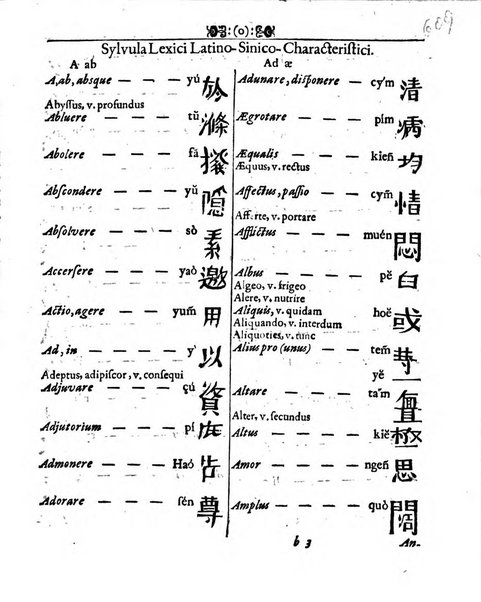 :(0):
609
Sylvula Lexici Latino-Sinico-Characteriſtici.
A ab
A, ab, absque — — — yú 於
Abyſſus, v. profundus
Abluere — — — — tŭ 滌
Abolere — — — — fă 撥
Abſcondere — — — yŭ 隱
Abſolvere — — — sò 素
Accerſere — — — yaò 邀
Actio, agere — — — yum̃ 用
Ad, in — — — — y' 以
Adeptus, adipiſcor, v. conſequi
Adjuvare — — — çú 資
Adjutorium — — — pí 庇
Admonere — — — Haó 告
Adorare — — — — ſén 尊
Ad æ
Adunare, diſponere — cy'm 清
Ægrotare — — — pím 病
Æqualis — — — kieñ 均
Æquus, v. rectus
Affectus, paſſio — — cym̃ 情
Afferte, v. portare
Afflictus — — — muén 悶
Albus — — — — pĕ 白
Algeo, v. frigeo
Alere, v. nutrire
Aliquis, v. quidam hoĕ 或
Aliquando, v. interdum
Aliquoties, v. tunc
Alius pro (unus) — — tem̃
yĕ
Altare — — — ta'm
Alter, v. ſecundus
Altus — — — — kiĕ 極
Amor — — — ngeñ 思
Amplus — — — quò 闊
b 3
An-